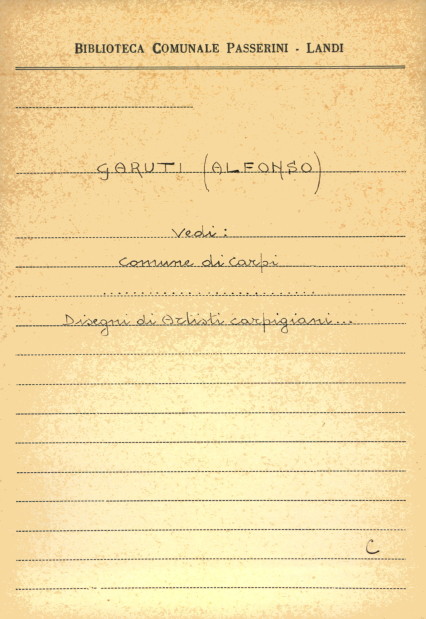 BIBLIOTECA COMUNALE PASSERINI - LANDI
GARUTI (ALFONSO)
Vedi:
Comune di Carpi
..........................
Disegni di Artisti carpigiani...
C